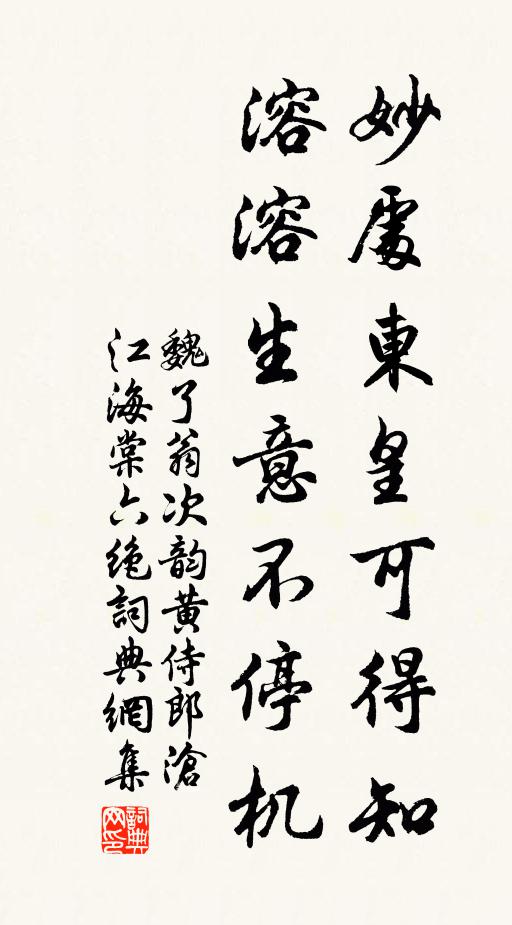 妙處東皇可得知
溶溶生意不停机
魏了翁次韵黄侍郎滄
江海棠六绝詞典網集
詞典
网印